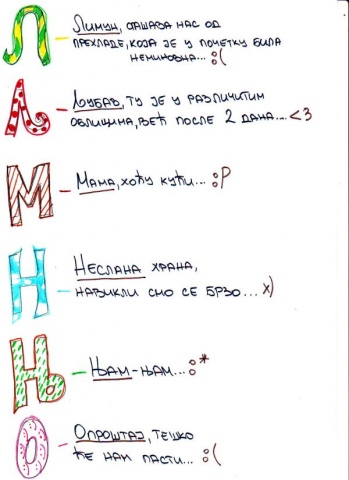 Л – Лимун, спашава нас од
прехладе, која је у почетку била
неминовна... :(
Љ – Љубав, ту је у различитим
облицима, већ после 2 дана... <3
М – Мама, хоћу кући... :P
Н – Неслана храна,
навикли смо се брзо... x)
Њ – Њам-њам... :*
О – Опроштај, тешко
ће нам пасти... :(